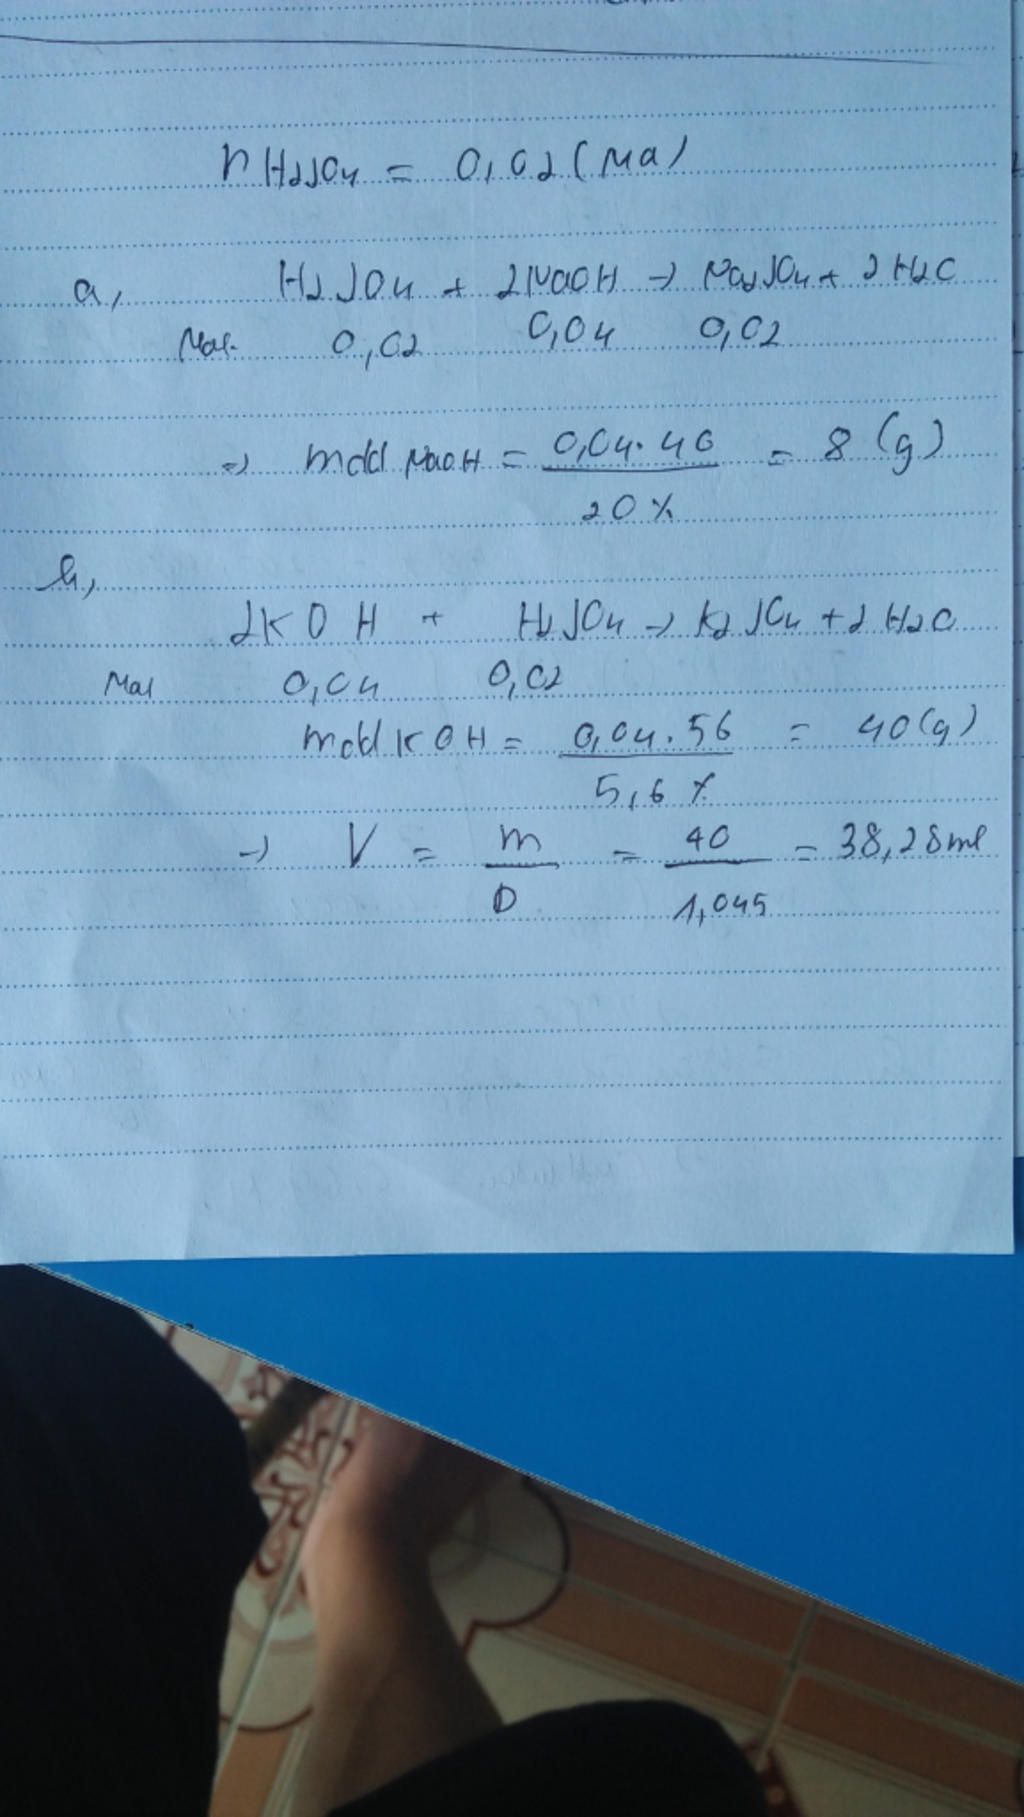 nH2SO4 = 0,02 (Mol)
a, H2SO4 + 2NaOH → Na2SO4 + 2H2O
Mol 0,02 0,04 0,02
=> mdd NaOH = 0,04.40 / 20% = 8 (g)
b,
2KOH + H2SO4 → K2SO4 + 2H2O
Mol 0,04 0,02
mdd KOH = 0,04.56 / 5,6% = 40(g)
→ V = m / D = 40 / 1,045 = 38,28ml